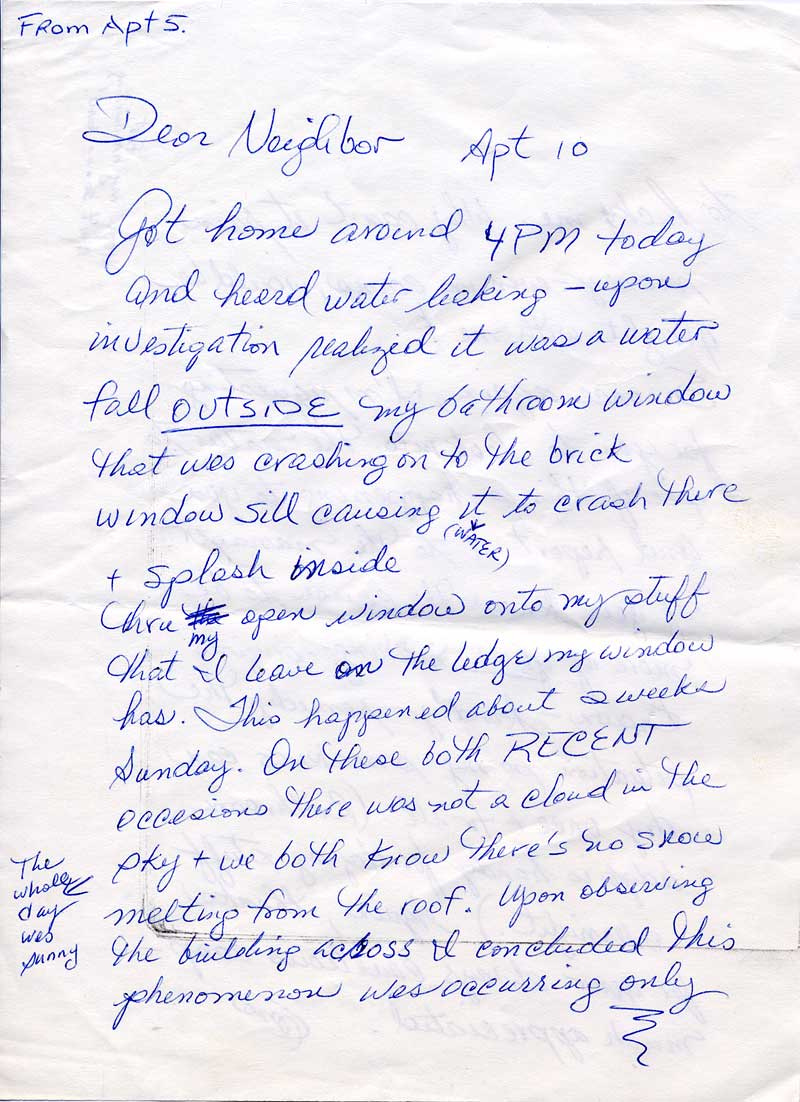 From Apt 5.
Dear Neighbor Apt 10
Got home around 4PM today
and heard water leaking – upon
investigation realized it was a water
fall OUTSIDE my bathroom window
that was crashing on to the brick
window sill causing it to crash there
(WATER)
+ splash inside
thru my open window onto my stuff
that I leave on the ledge my window
has. This happened about 2 weeks
Sunday. On these both RECENT
occasions there was not a cloud in the
sky + we both know there's no snow
melting from the roof. Upon observing
The
whole
day
was
sunny
the building across I concluded this
phenomenon was occurring only